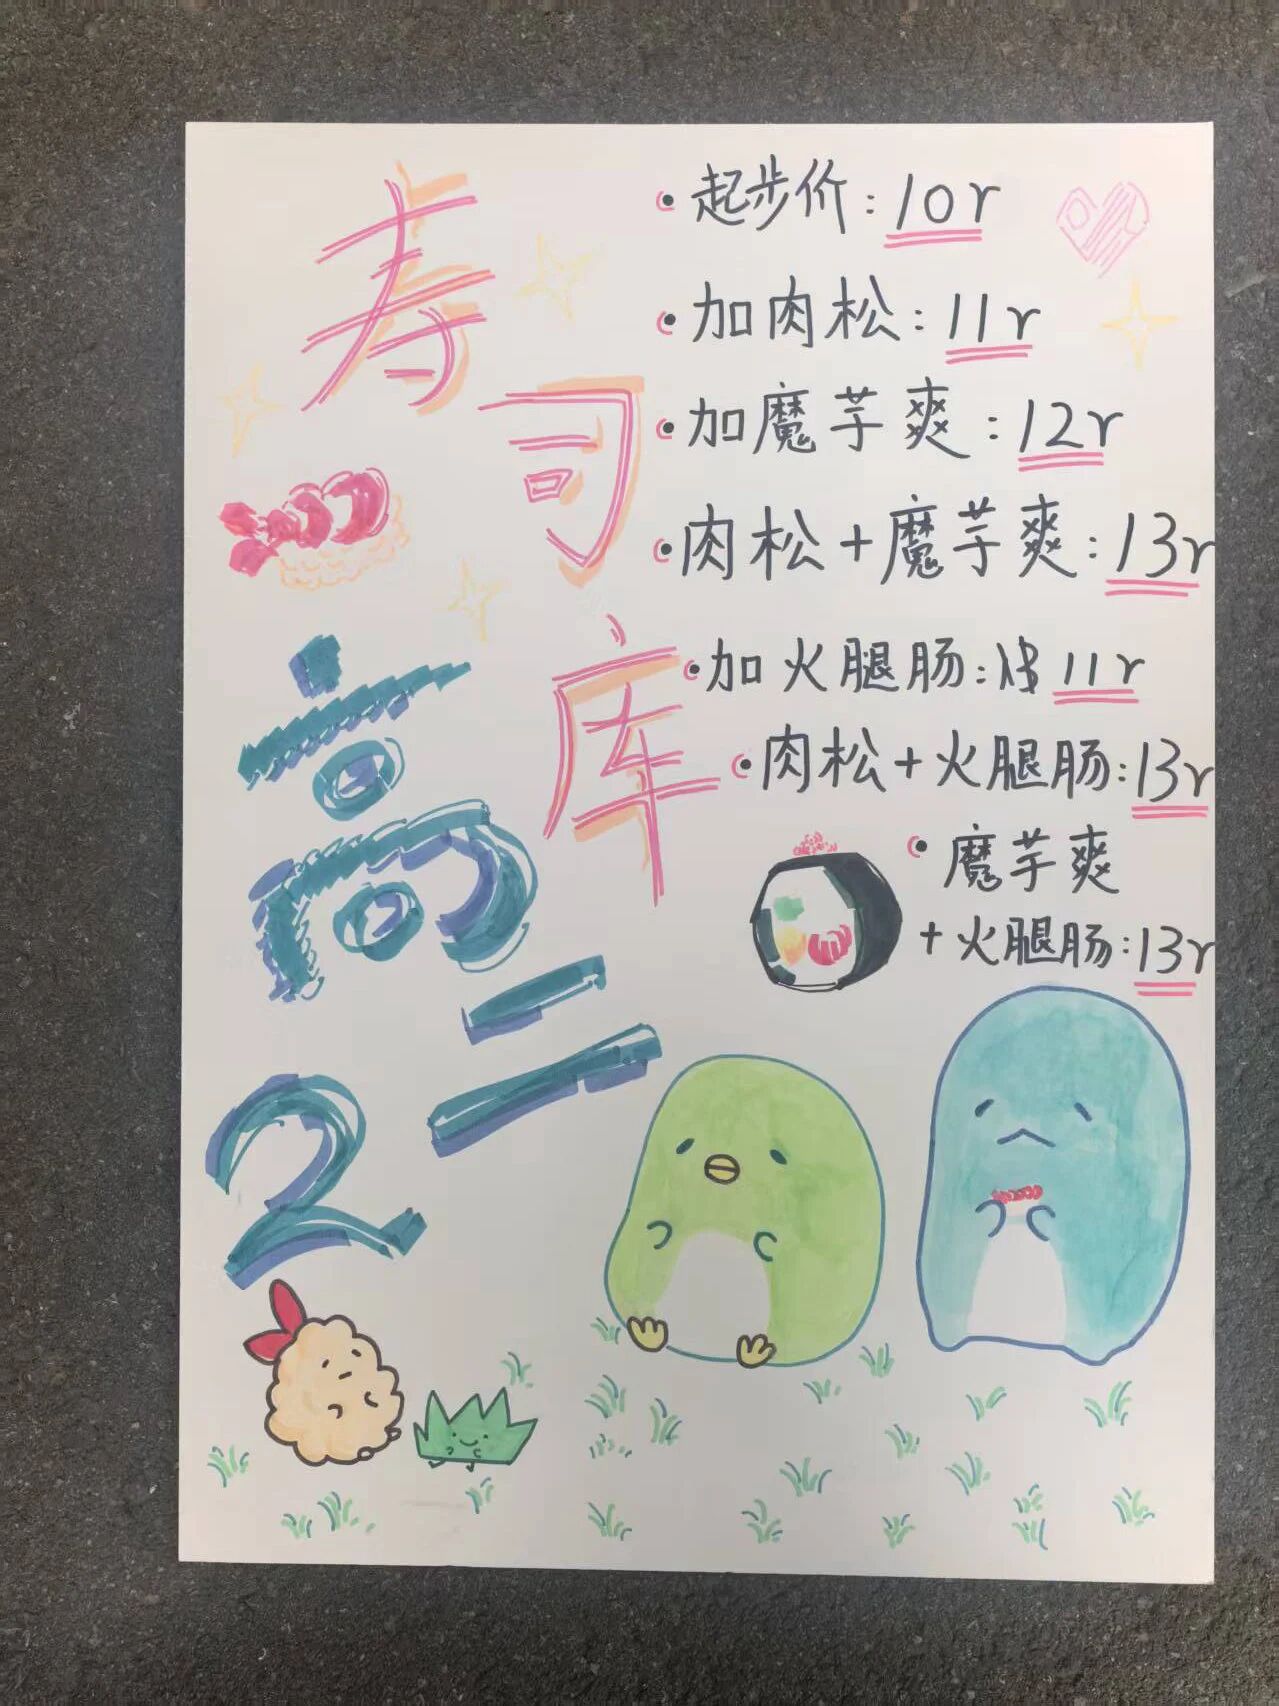 寿司库
高二
2
起步价:10r
加肉松:11r
加魔芋爽:12r
肉松+魔芋爽:13r
加火腿肠:11r
肉松+火腿肠:13r
魔芋爽
+火腿肠:13r